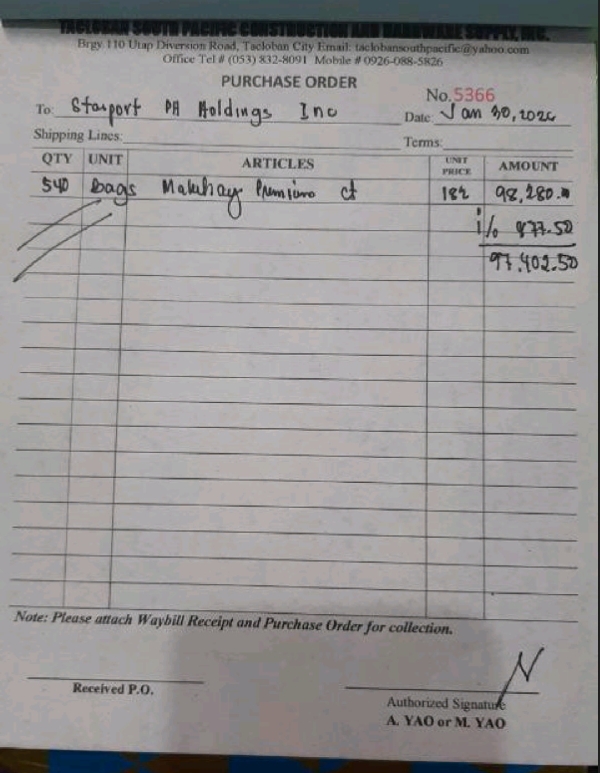 TACLOBAN SOUTH PACIFIC CONSTRUCTION AND HARDWARE SUPPLY, INC.
Brgy. 110 Utap Diversion Road, Tacloban City Email: taclobansouthpacific@yahoo.com
Office Tel # (053) 832-8091 Mobile # 0926-088-5826
PURCHASE ORDER
No. 5366
To: Starport PH Holdings Inc Date: Jan 30, 2026
Shipping Lines: Terms:
QTY UNIT ARTICLES UNIT PRICE AMOUNT
540 bags Premium 182 98,280.00
1% 877.50
97,402.50
Note: Please attach Waybill Receipt and Purchase Order for collection.
Received P.O.
Authorized Signature
A. YAO or M. YAO